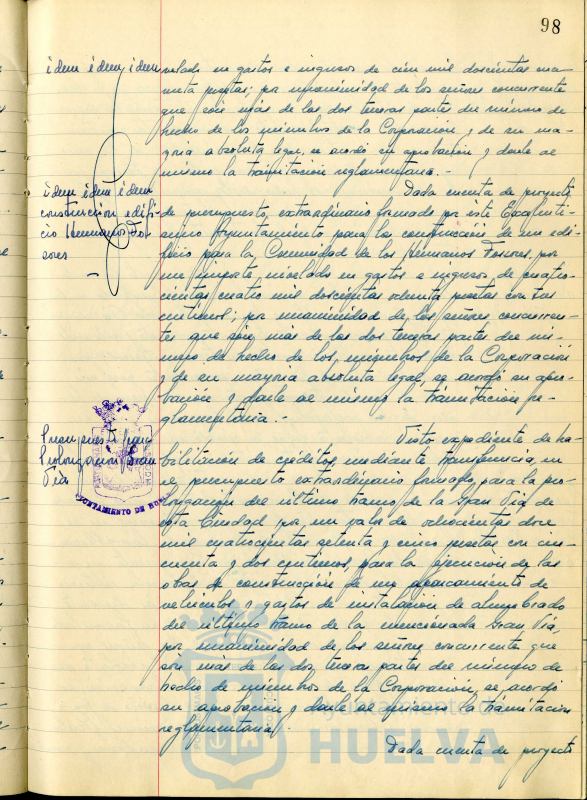 98
idem idem idem
nelado en gastos e ingresos de cien mil doscientas
neta pesetas; por unanimidad de los señores concurrentes
que son más de las dos terceras partes del número de
hecho de los miembros de la Corporación y de su ma-
yoria absoluta legal, se acordó su aprobación y darle al
mismo la tramitación reglamentaria.-
idem idem idem
construcción edifi-
cio Hermanos Fo-
sores
Dada cuenta de proyecto
de presupuesto extraordinario formado por este Excelentí-
simo Ayuntamiento para la construcción de un edi-
ficio para la Comunidad de los Hermanos Fosores, por
un importe nivelado en gastos e ingresos de cuatro-
cientas cuatro mil doscientas ochenta pesetas con tres
centimos; por unanimidad de los señores concurren-
tes que son más de las dos terceras partes del nú-
mero de hecho de los miembros de la Corporación
y de su mayoria absoluta legal, se acordó su apro-
bación y darle al mismo la tramitación re-
glamentaria.-
Presupuesto para
Prolongación Gran
Vía
AYUNTAMIENTO DE HUELVA
Visto expediente de ha-
bilitación de créditos mediante transferencia en
el presupuesto extraordinario formado para la pro-
longación del último tramo de la Gran Vía de
esta Ciudad por un valor de ochocientas doce
mil cuatrocientas setenta y cinco pesetas con cin-
cuenta y dos centimos, para la ejecución de las
obras de construcción de un aparcamiento de
vehículos y gastos de instalación de alumbrado
del último tramo de la mencionada Gran Vía,
por unanimidad de los señores concurrente que
son mas de las dos terceras partes del número de
hecho de miembros de la Corporación, se acordó
su aprobación y darle al mismo la tramitación
reglamentaria.
Dada cuenta de proyecto
Ayuntamiento de
HUELVA